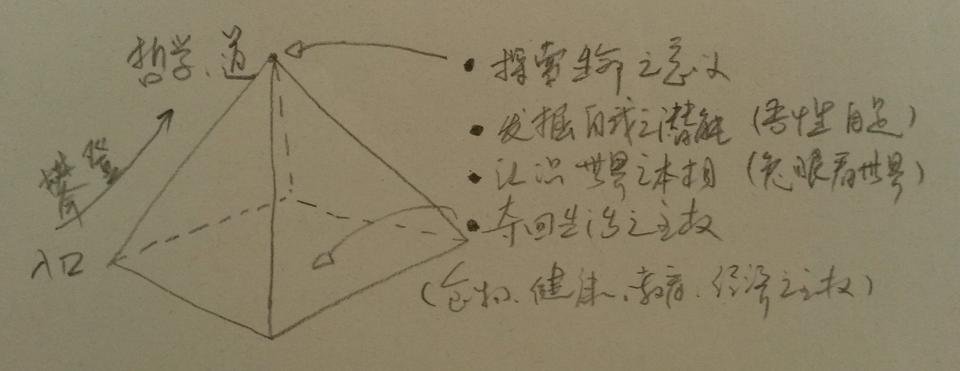 哲学、道
攀登
入口
• 探索生命之意义
• 发掘自我之潜能（吾性自足）
• 认识世界之本相（兔眼看世界）
• 夺回生活之主权
（食物、健康、教育、经济之主权）